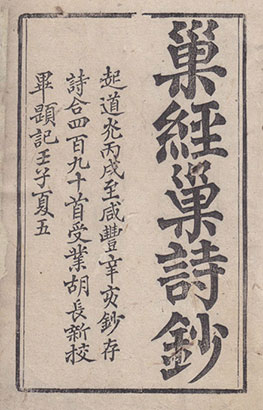 巢經巢詩鈔
起道光丙戌至咸豐辛亥鈔存
詩合四百九十首受業胡長新校
畢題記壬子夏五